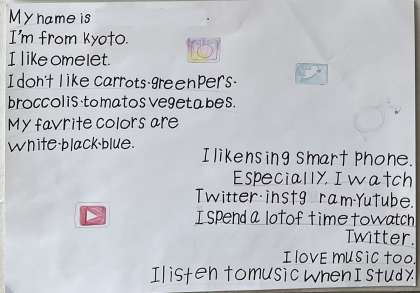 My name is
I'm from Kyoto.
I like omelet.
I don't like carrots·greenpers·
broccolis·tomatos vegetabes.
My favrite colors are
white·black·blue.
I likensing smart phone.
Especially, I watch
Twitter·instg ram·Yutube.
I spend a lot of time to watch
Twitter.
I love music too.
I listen to music when I study.